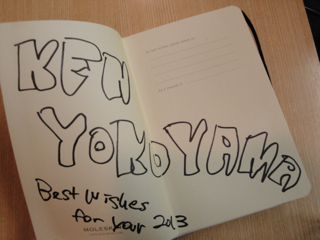 KEN
YOKOYAMA
Best Wishes
for your 2013
MOLESKINE